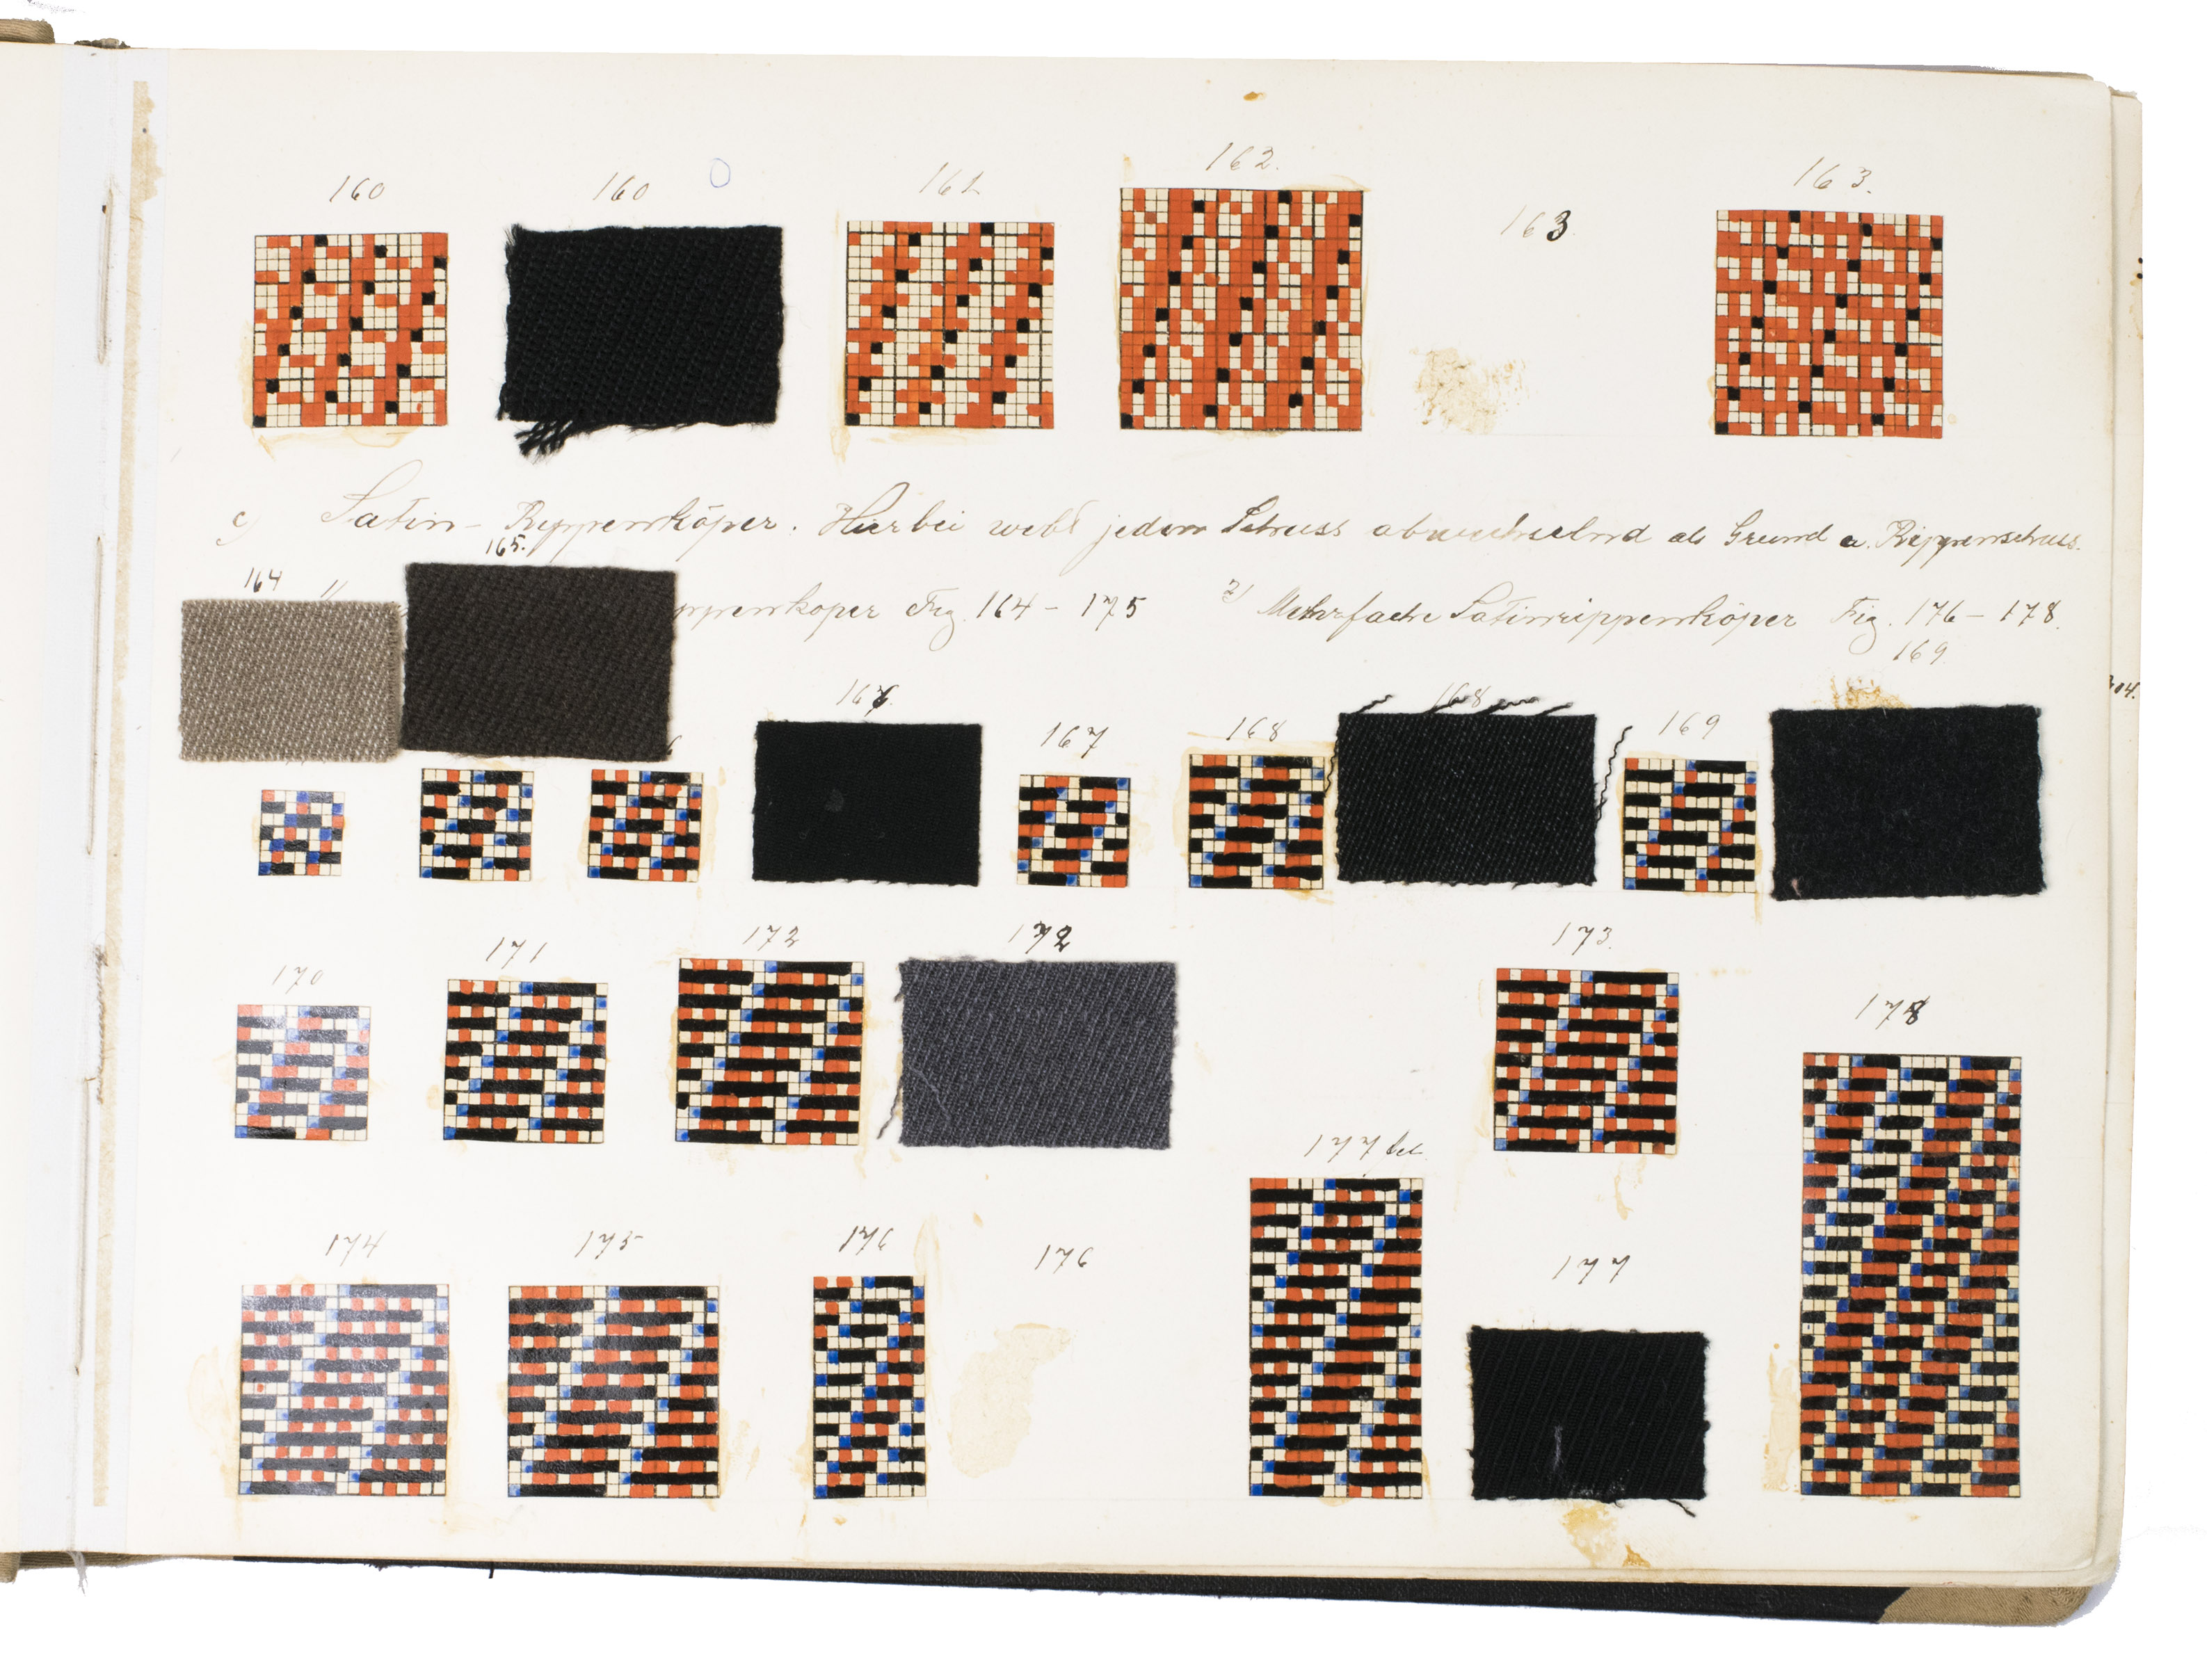 160 160 161 162. 163 163.
c) Satin-Rippenköper. Hierbei webt jeder Schuss abwechselnd als Grund u. Rippenschuss.
164 165.
ppenköper Fig. 164 - 175 2) Mehrfache Satinrippenköper Fig. 176 - 178.
169
166. 167 168 168 169
6
304.
170 171 172 172 173.
178
174 175 176 176 177 177